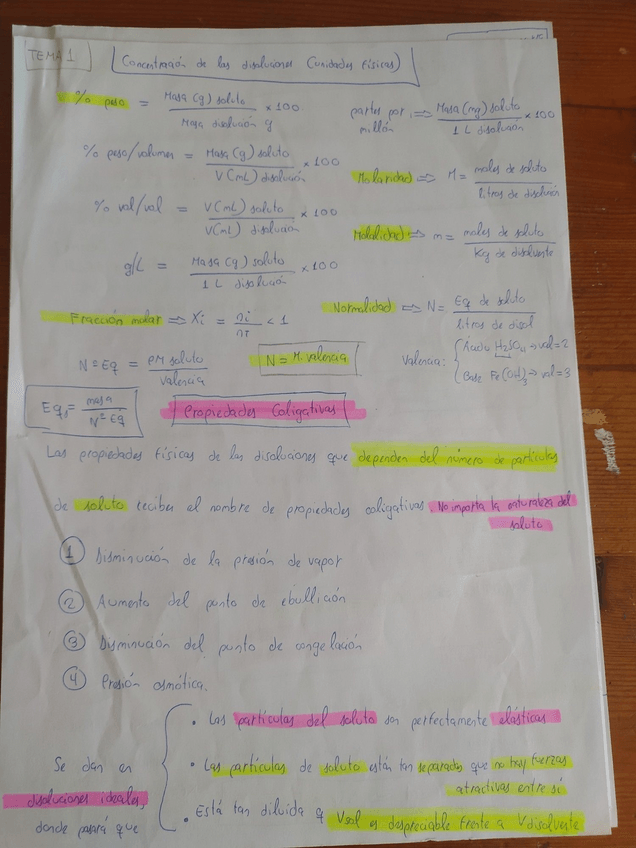 TEMA 1
Concentración de las disoluciones (unidades físicas)
% peso = Masa (g) soluto / Masa disolución g × 100
partes por millón ⇒ Masa (mg) soluto / 1 L disolución × 100
% peso/volumen = Masa (g) soluto / V (mL) disolución × 100
Molaridad ⇒ M = moles de soluto / litros de disolución
% vol/vol = V (mL) soluto / V (mL) disolución × 100
Molalidad ⇒ m = moles de soluto / Kg de disolvente
g/L = Masa (g) soluto / 1 L disolución × 100
Normalidad ⇒ N = Eq de soluto / litros de disol
Fracción molar ⇒ Xi = ni / nT < 1
Nº Eq = PM soluto / valencia
N = M. valencia
Valencia: { Ácido H2SO4 → val = 2
Base Fe(OH)3 → val = 3
Eq = masa / Nº Eq
Propiedades Coligativas
Las propiedades físicas de las disoluciones que dependen del número de partículas
de soluto reciben el nombre de propiedades coligativas. No importa la naturaleza del
soluto
① Disminución de la presión de vapor
② Aumento del punto de ebullición
③ Disminución del punto de congelación
④ Presión osmótica.
Se dan en
disoluciones ideales,
donde pasará que
• Las partículas del soluto son perfectamente elásticas
• Las partículas de soluto están tan separadas que no hay fuerzas
atractivas entre sí
• Está tan diluida q Vsol es despreciable frente a Vdisolvente